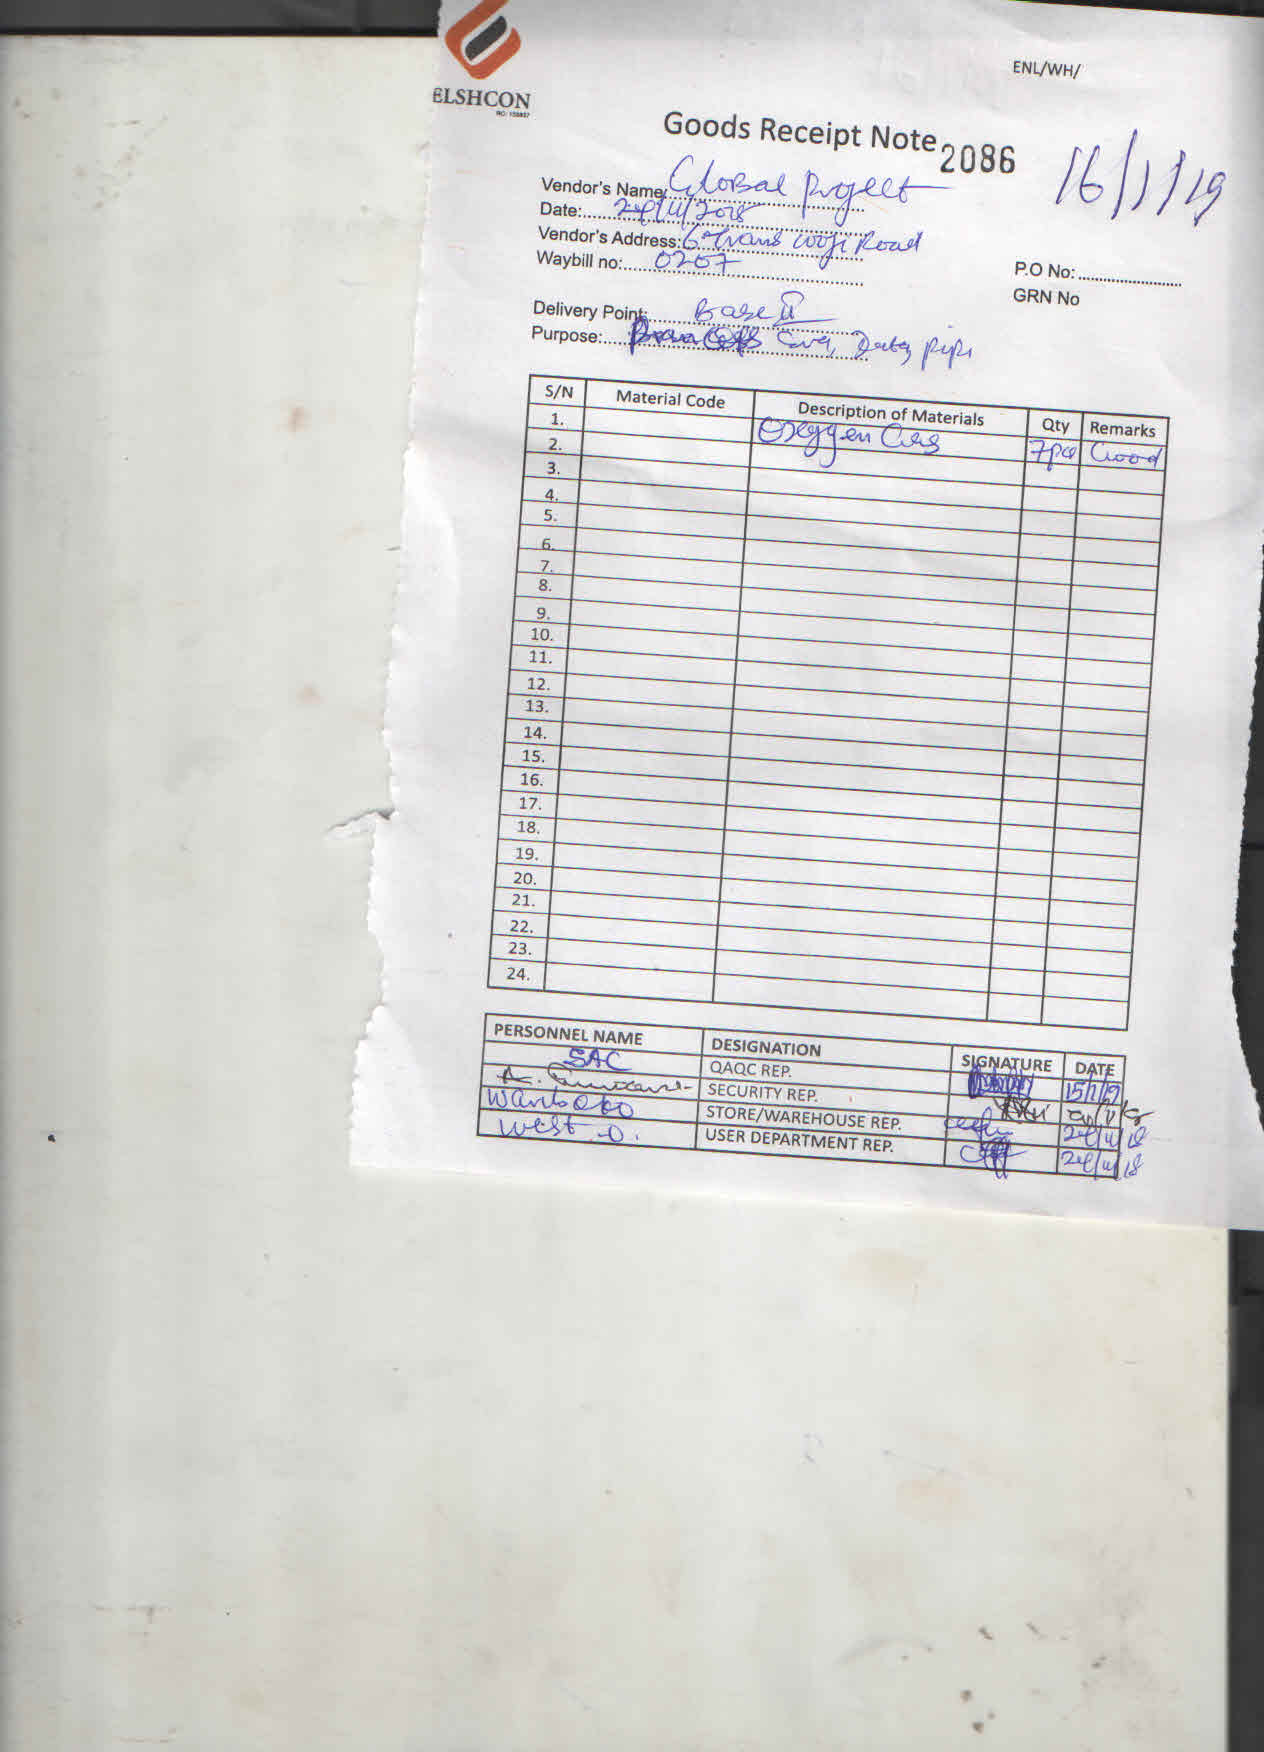 ENL/WH/
ELSHCON
RC: 155857
Goods Receipt Note 2086
16/1/19
Vendor's Name: Global Project
Date: 24/11/2018
Vendor's Address: 6 trans woji Road
Waybill no: 0207
P.O No:
GRN No
Delivery Point: Base II
Purpose:
S/N Material Code Description of Materials Qty Remarks
1. Oxygen Gas 7pcs Good
2.
3.
4.
5.
6.
7.
8.
9.
10.
11.
12.
13.
14.
15.
16.
17.
18.
19.
20.
21.
22.
23.
24.
PERSONNEL NAME DESIGNATION SIGNATURE DATE
SAC QAQC REP. 15/1/19
A. SECURITY REP.
Waribo SECURITY STORE/WAREHOUSE REP. 24/11/18
West .O. USER DEPARTMENT REP. 24/11/18